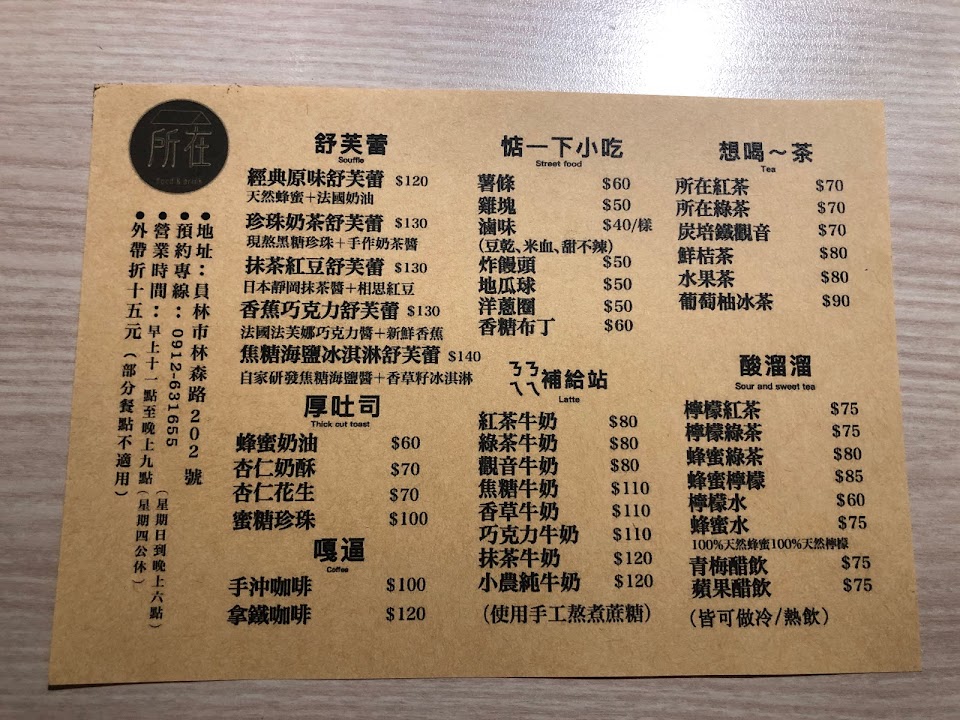 所在
Food & drink
●地址：員林市林森路202號
●預約專線：0912-631655
●營業時間：早上十一點至晚上九點(星期日到晚上六點)
(星期四公休)
●外帶折十五元(部分餐點不適用)
舒芙蕾
Souffle
經典原味舒芙蕾 $120
天然蜂蜜＋法國奶油
珍珠奶茶舒芙蕾 $130
現熬黑糖珍珠＋手作奶茶醬
抹茶紅豆舒芙蕾 $130
日本靜岡抹茶醬＋相思紅豆
香蕉巧克力舒芙蕾 $130
法國法芙娜巧克力醬＋新鮮香蕉
焦糖海鹽冰淇淋舒芙蕾 $140
自家研發焦糖海鹽醬＋香草籽冰淇淋
厚吐司
Thick cut toast
蜂蜜奶油 $60
杏仁奶酥 $70
杏仁花生 $70
蜜糖珍珠 $100
嘎逼
Coffee
手沖咖啡 $100
拿鐵咖啡 $120
惦一下小吃
Street food
薯條 $60
雞塊 $50
滷味 $40/樣
(豆乾、米血、甜不辣)
炸饅頭 $50
地瓜球 $50
洋蔥圈 $50
香糖布丁 $60
ㄋㄟㄋㄟ補給站
Latte
紅茶牛奶 $80
綠茶牛奶 $80
觀音牛奶 $80
焦糖牛奶 $110
香草牛奶 $110
巧克力牛奶 $110
抹茶牛奶 $120
小農純牛奶 $120
(使用手工熬煮蔗糖)
想喝～茶
Tea
所在紅茶 $70
所在綠茶 $70
炭培鐵觀音 $70
鮮桔茶 $80
水果茶 $80
葡萄柚冰茶 $90
酸溜溜
Sour and sweet tea
檸檬紅茶 $75
檸檬綠茶 $75
蜂蜜綠茶 $80
蜂蜜檸檬 $85
檸檬水 $60
蜂蜜水 $75
100%天然蜂蜜100%天然檸檬
青梅醋飲 $75
蘋果醋飲 $75
(皆可做冷/熱飲)